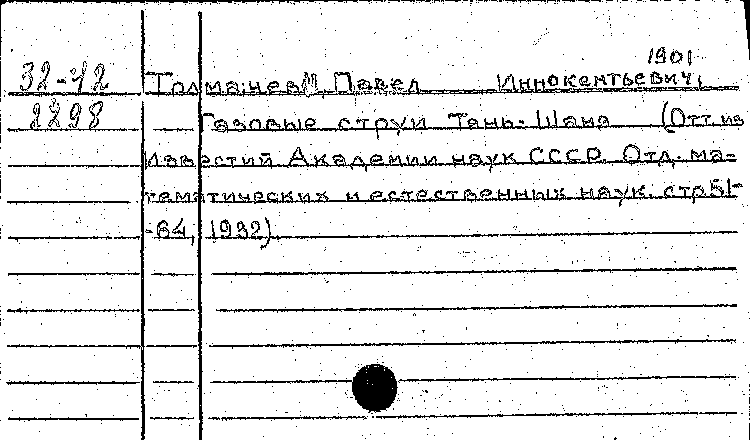 1901
32-42 Толмачев, Павел Иннокентьевич,
2298 Газовые струи Тянь-Шаня (Отт. из
Известий Академии наук СССР. Отд. ма=
тематических и естественных наук. стр 51-
-64, 1932).